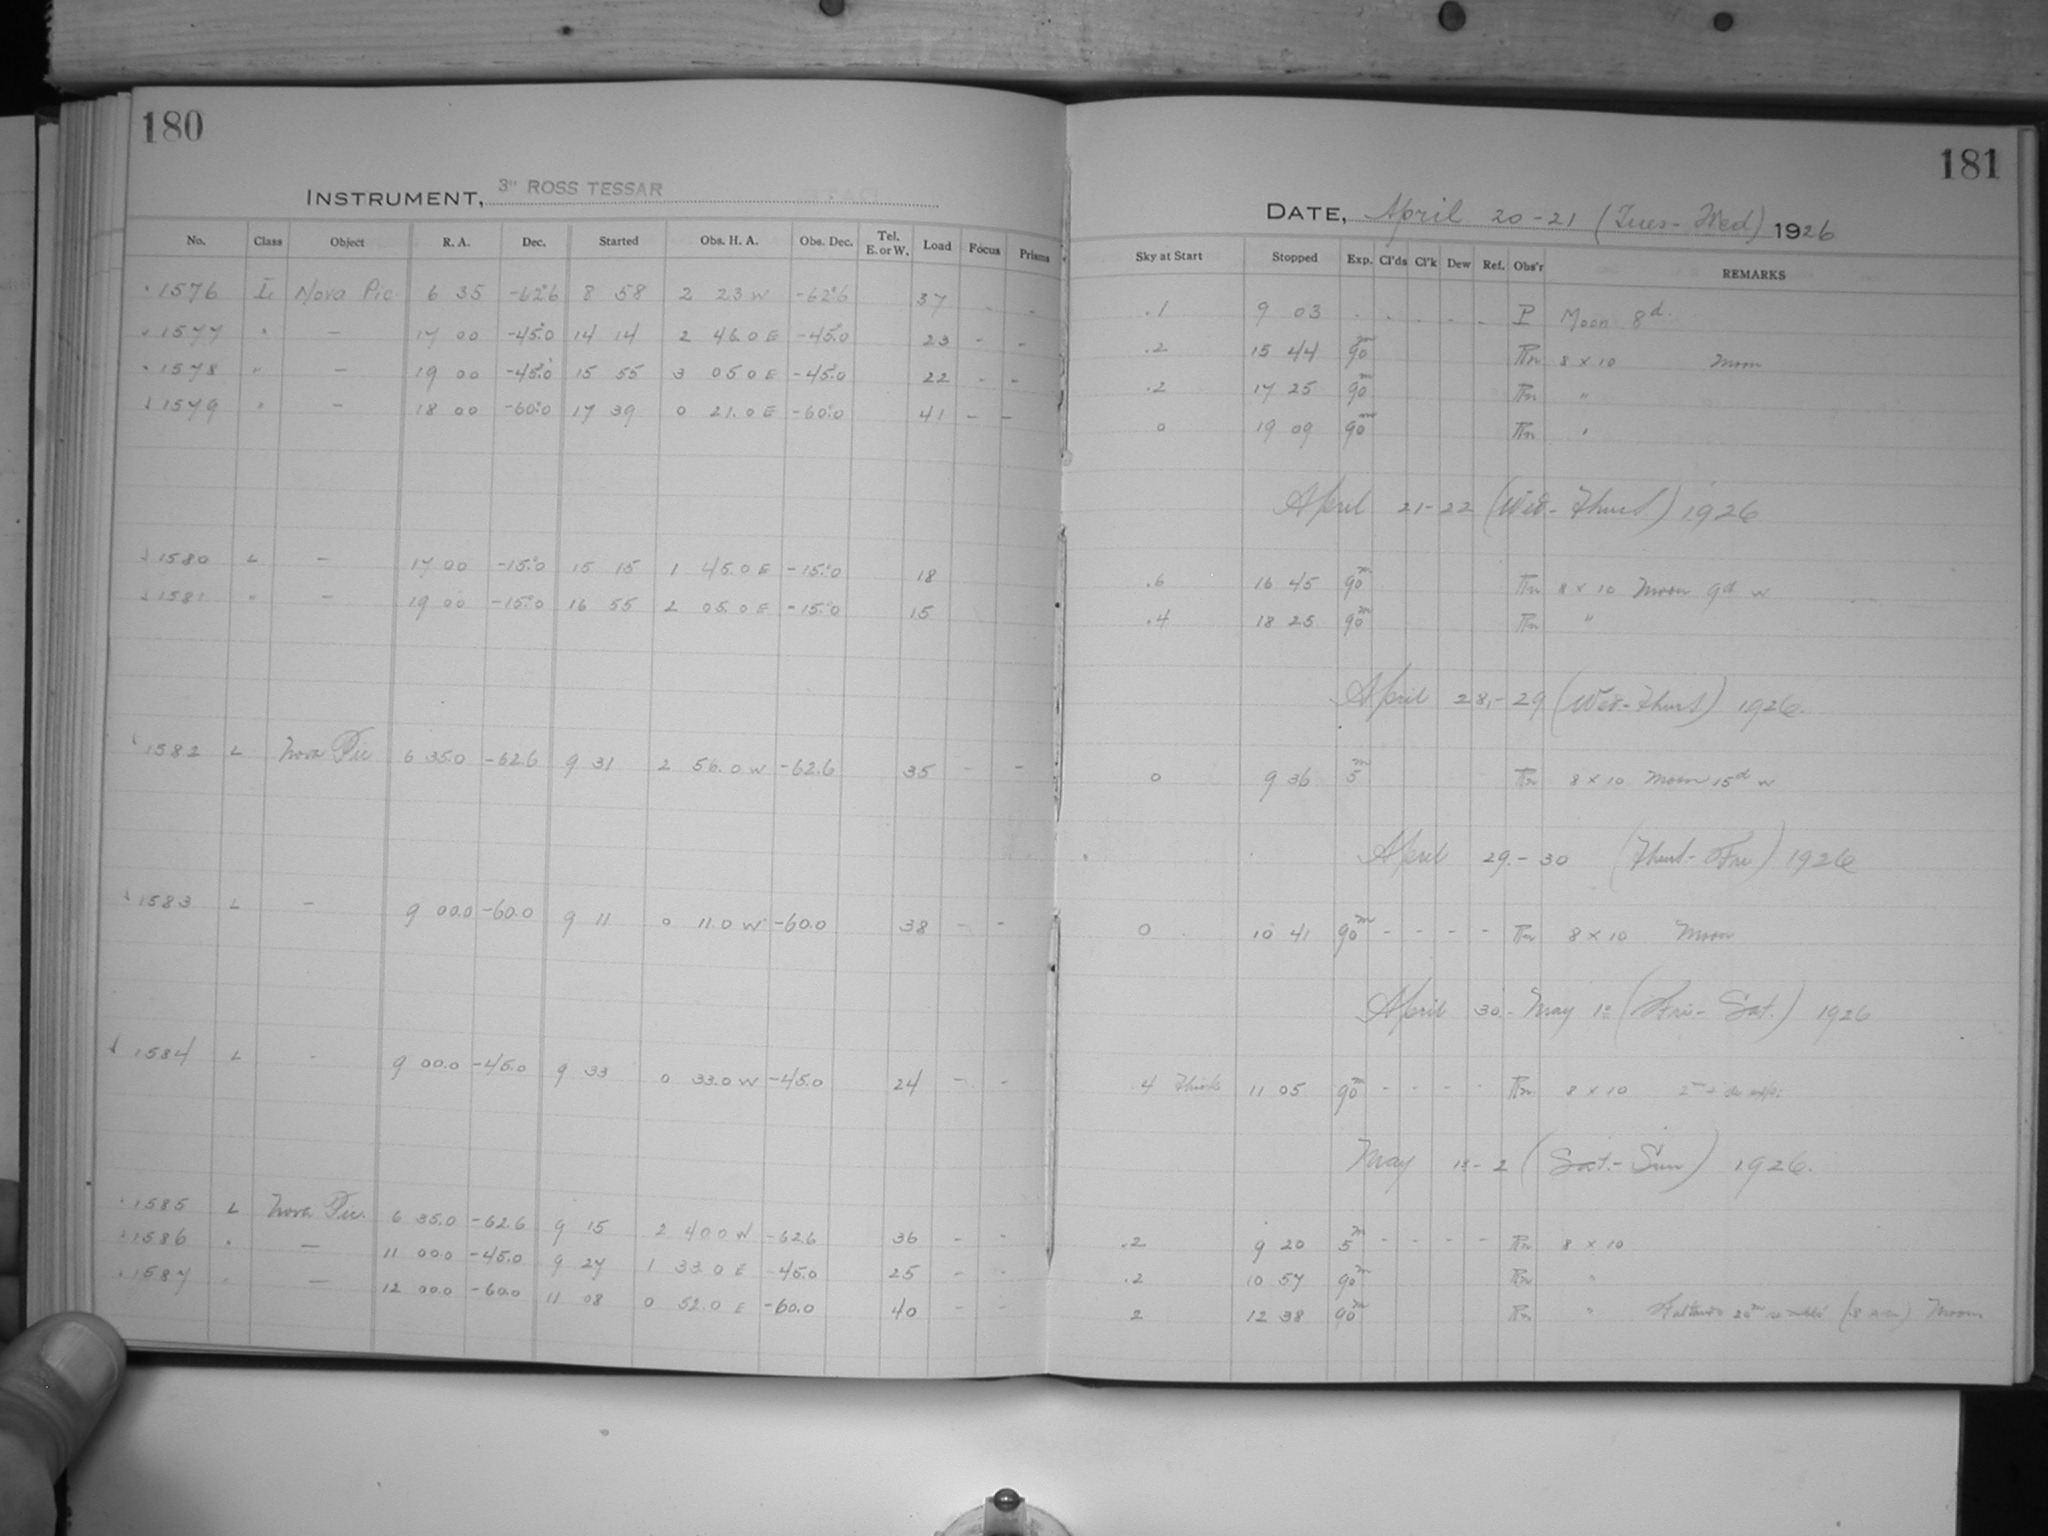 180
INSTRUMENT, 3" ROSS TESSAR
No. Class Object R. A. Dec. Started Obs. H. A. Obs. Dec. Tel. E. or W. Load Focus Prisms
1576 L Nova Pic. 6 35 -62.6 8 58 2 23 W -62.6 37 - -
1577 " — 17 00 -45.0 14 14 2 46.0 E -45.0 23 - -
1578 " — 19 00 -45.0 15 55 3 05.0 E -45.0 22 - -
1579 " — 18 00 -60.0 17 39 0 21.0 E -60.0 41 - -
1580 L — 17 00 -15.0 15 15 1 45.0 E -15.0 18
1581 " — 19 00 -15.0 16 55 2 05.0 E -15.0 15
1582 L Nova Pic 6 35.0 -62.6 9 31 2 56.0 W -62.6 35 - -
1583 L — 9 00.0 -60.0 9 11 0 11.0 W -60.0 38 - -
1584 L - 9 00.0 -45.0 9 33 0 33.0 W -45.0 24 - -
1585 L Nova Pic. 6 35.0 -62.6 9 15 2 40.0 W -62.6 36 - -
1586 " — 11 00.0 -45.0 9 27 1 33.0 E -45.0 25 - -
1587 " — 12 00.0 -60.0 11 08 0 52.0 E -60.0 40 - -
181
DATE, April 20-21 (Tues-Wed) 1926
Sky at Start Stopped Exp. Cl'ds Cl'k Dew Ref. Obs'r REMARKS
.1 9 03 . . . . . P Moon 8d.
.2 15 44 90m 8 x 10 Moon
.2 17 25 90m "
0 19 09 90m "
April 21-22 (Wed-Thurs) 1926
.6 16 45 90m 8 x 10 Moon 9d W
.4 18 25 90m "
April 28-29 (Wed-Thurs) 1926.
0 9 36 5m 8 x 10 Moon 15d W
April 29-30 (Thurs-Fri) 1926
0 10 41 90m - - - - 8 x 10 Moon
April 30-May 1º (Fri-Sat.) 1926
4 Thick 11 05 90m - - - - 8 x 10
May 1º-2 (Sat.-Sun) 1926.
.2 9 20 5m - - - - 8 x 10
.2 10 57 90m "
2 12 38 90m " 20m Moon